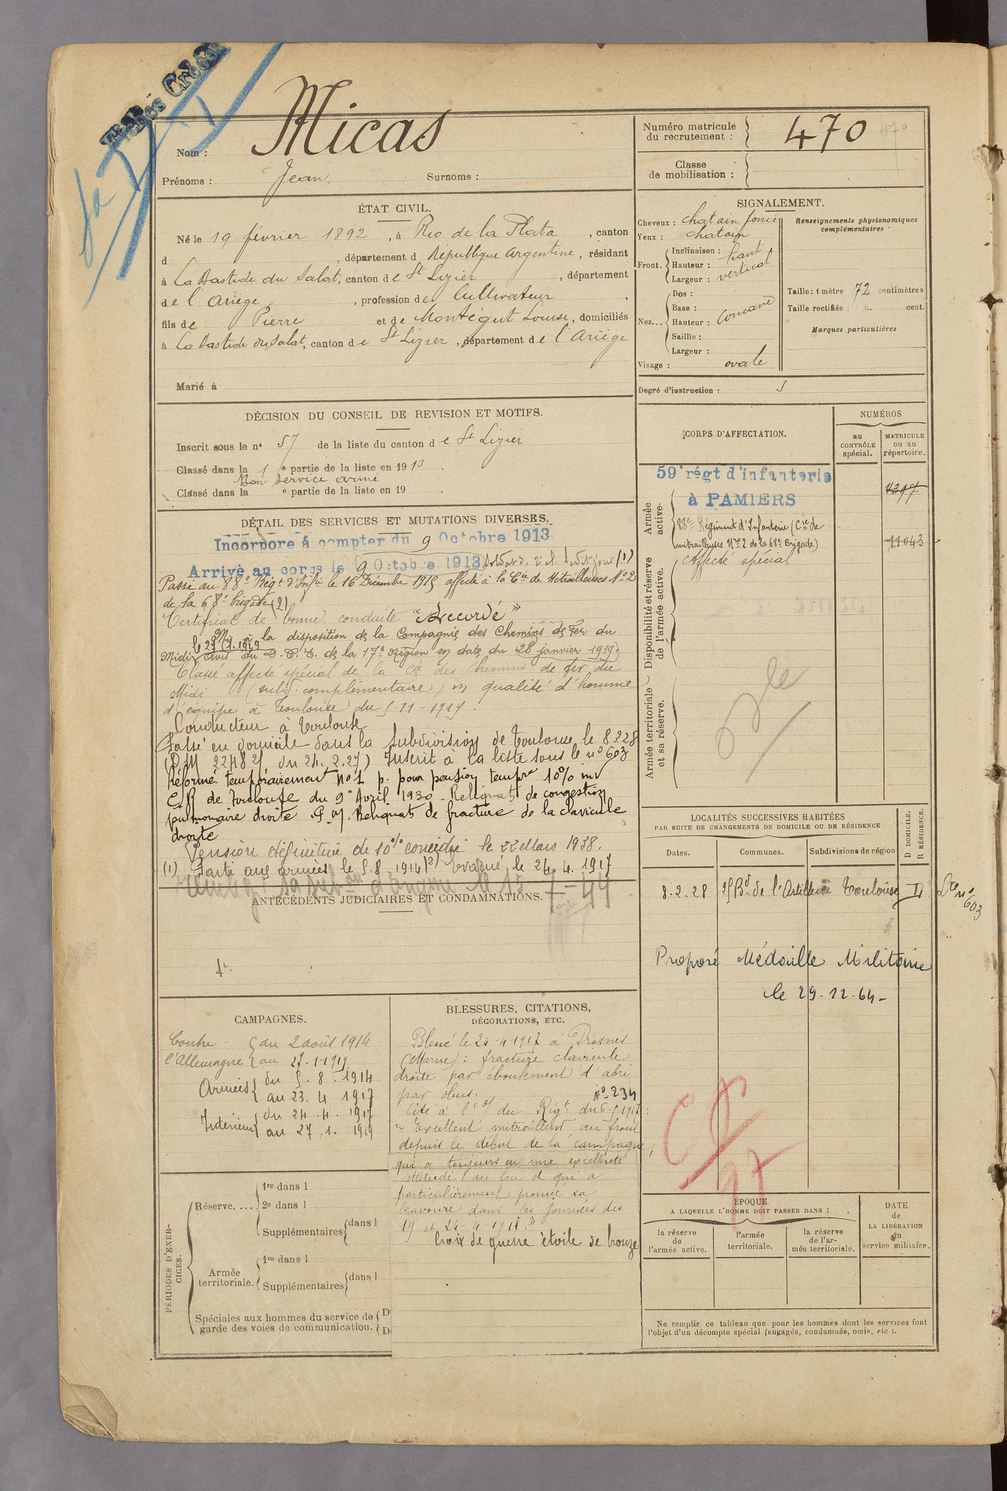 Nom : Micas
Prénoms : Jean Surnoms :
Numéro matricule du recrutement : 470
Classe de mobilisation :
ÉTAT CIVIL.
Né le 19 février 1892, à Rio de la Plata, canton
d , département d République Argentine, résidant
à La Bastide du Salat, canton de St Lizier, département
de l'Ariège, profession de Cultivateur,
fils de Pierre et de Montégut Louise, domiciliés
à La Bastide du Salat, canton de St Lizier, département de l'Ariège
Marié à
SIGNALEMENT.
Cheveux : chatain foncé
Yeux : chatain
Front. Inclinaison :
Hauteur : haut
Largeur : vertical
Nez... Dos :
Base :
Hauteur : concave
Saillie :
Largeur :
Visage : ovale
Renseignements physionomiques complémentaires
Taille : 1 mètre 72 centimètres
Taille rectifiée : cent.
Marques particulières
Degré d'instruction : 3
DÉCISION DU CONSEIL DE REVISION ET MOTIFS.
Inscrit sous le n° 57 de la liste du canton de St Lizier
Classé dans la 1e partie de la liste en 1913
Bon service armé
Classé dans la e partie de la liste en 19
DÉTAIL DES SERVICES ET MUTATIONS DIVERSES.
Incorporé à compter du 9 Octobre 1913
Arrivé au corps le 9 Octobre 1913 Soldat de 2e cl. le dit jour (1)
Passé au 88e Régt d'Infie le 16 Décembre 1915 affecté à la Cie de Mitrailleuses No 2
de la 68e brigade (2)
Certificat de bonne conduite "Accordé"
à la disposition de la Compagnie des Chemins de Fer du
Midi avis du D.C.C. de la 17e Région en date du 28 janvier 1919
Classé affecté spécial de la Cie des chemins de fer du
Midi (subd. complémentaire) en qualité d'homme
d'équipe à Toulouse du 5-11-1919.
Conducteur à Toulouse
Passé en domicile dans la subdivision de Toulouse, le 8.2.28
(DM 2248 2/ du 24.2.27) Inscrit à la liste sous le n° 603
Réformé temporairement N°1 p. pour pension tempre 10% inv
C.R de Toulouse du 9 Avril 1930 - Reliquat de congestion
pulmonaire droite Reliquat de fracture de la clavicule
droite
Pension définitive de 10% concédée le 22 Mars 1938.
(1) Parti aux armées le 5.8.1914 (2) Evacué le 24.4.1917
ANTÉCÉDENTS JUDICIAIRES ET CONDAMNATIONS.
CORPS D'AFFECTATION.
NUMÉROS
AU CONTRÔLE spécial.
MATRICULE OU AU répertoire.
Armée active.
59e régt d'infanterie
à PAMIERS
4217
88e Régiment d'Infanterie (Cie de
mitrailleuses No 2 de la 68e Brigade)
11043
Disponibilité et réserve de l'armée active.
Affecté spécial
Armée territoriale et sa réserve.
LOCALITÉS SUCCESSIVES HABITÉES
PAR SUITE DE CHANGEMENTS DE DOMICILE OU DE RÉSIDENCE
Dates. Communes. Subdivisions de région D DOMICILE. R RÉSIDENCE.
8.2.28 Bd de l'Artillerie Toulouse D
603
Proposé Médaille Militaire
le 29-12-64-
CAMPAGNES.
Contre l'Allemagne du 2 août 1914
au 27-1-1919
Armées du 5.8.1914
au 23.4.1917
Intérieur du 24.4.1917
au 27.1.1919
BLESSURES, CITATIONS,
DÉCORATIONS, ETC.
Blessé le 24-4-1917 à Prosnes
(Marne) : fracture clavicule
droite par éboulement d'abri
par obus.
Cité à l'of du Rigt N° 234
"Excellent mitrailleur au front
depuis le début de la campagne,
qui a toujours eu une excellente
particulièrement prouvé sa
bravoure dans les journées des
Croix de guerre étoile de bronze
PÉRIODES D'EXERCICES.
Réserve.... 1re dans l
2e dans l
Supplémentaires dans l
Armée territoriale. 1re dans l
Supplémentaires dans l
Spéciales aux hommes du service de garde des voies de communication. D
D
ÉPOQUE
A LAQUELLE L'HOMME DOIT PASSER DANS :
la réserve de l'armée active.
l'armée territoriale.
la réserve de l'armée territoriale.
DATE de LA LIBÉRATION du service militaire.
Ne remplir ce tableau que pour les hommes dont les services font
l'objet d'un décompte spécial (engagés, condamnés, omis, etc.).